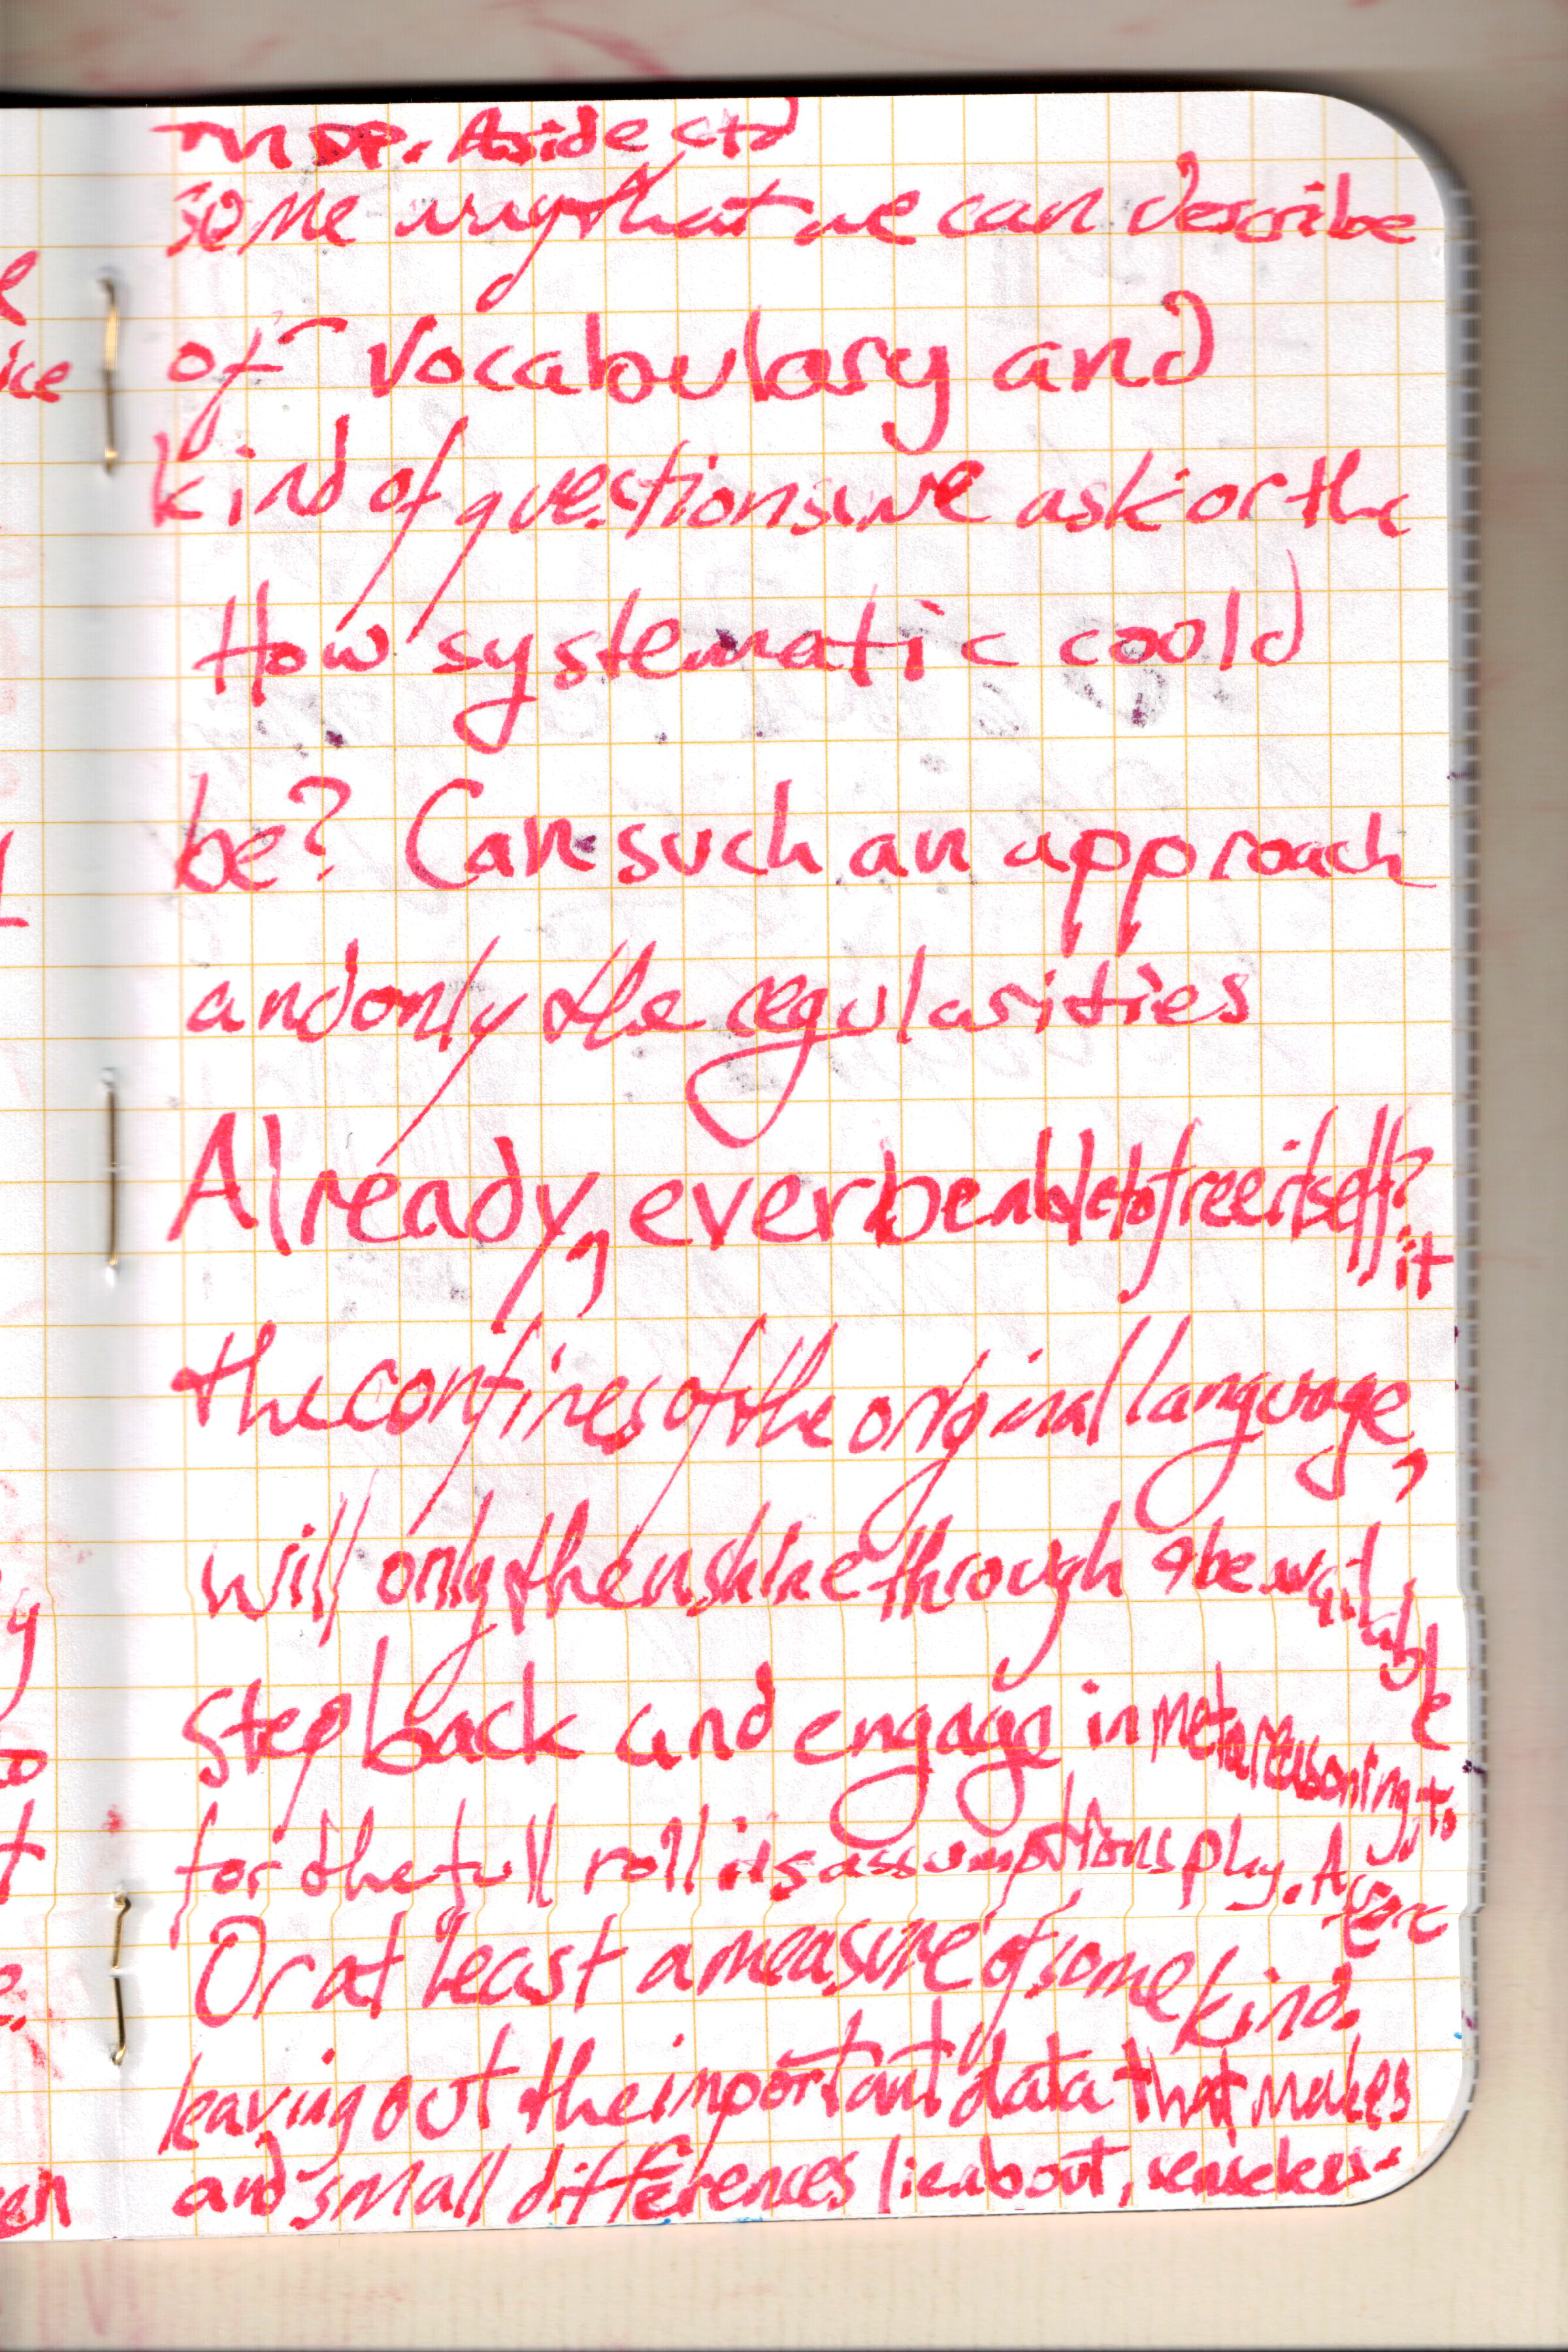 Aside ctd
some way that we can describe
of vocabulary and
kind of questions we ask or the
How systematic could
be? Can such an approach
and only the regularities
Already, ever be able to free itself?
it
the confines of the original language,
will only then shine through & be available
Step back and engage in metareasoning to
for the full roll its assumptions play. A
Or at least a measure of some kind.
leaving out the important data that makes
and small differences lie about, senseless-